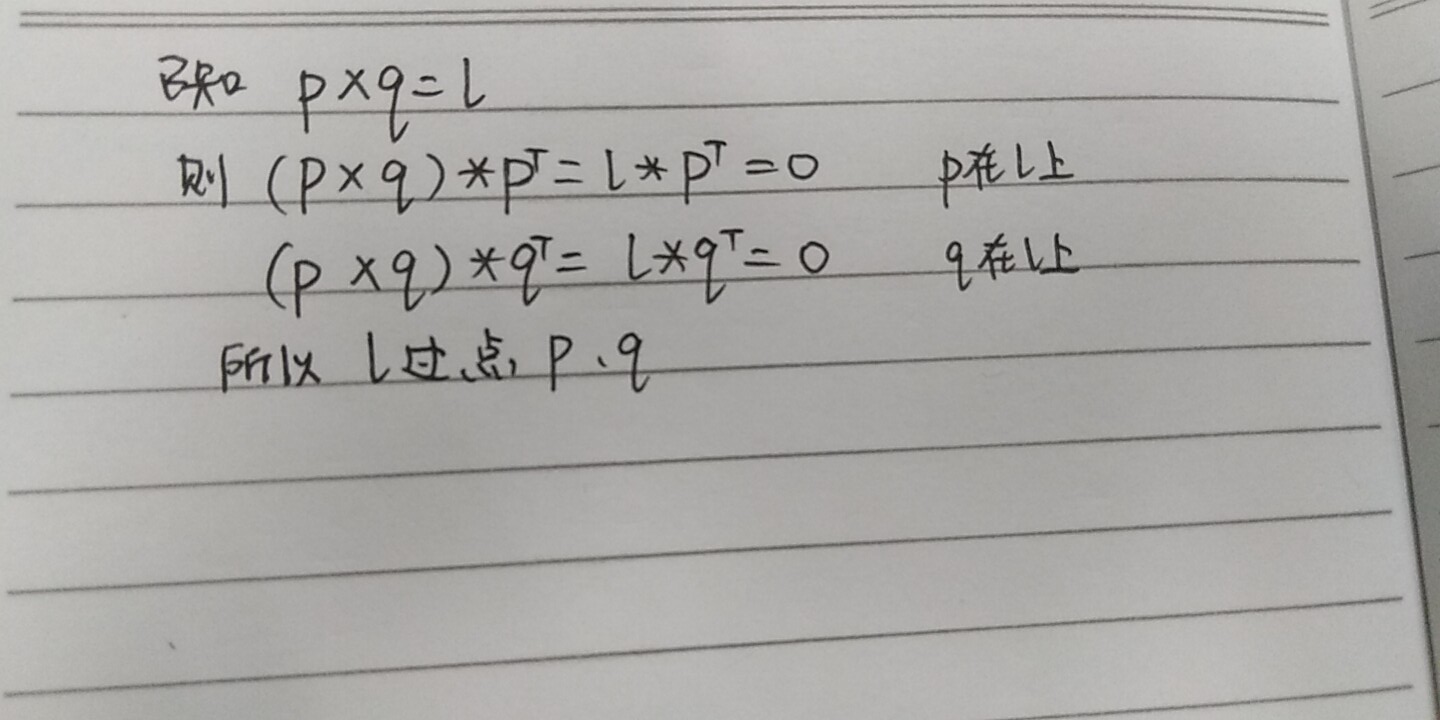 已知 p×q=l
则 (p×q)*pᵀ=l*pᵀ=0 p在l上
(p×q)*qᵀ=l*qᵀ=0 q在l上
所以 l过点p、q